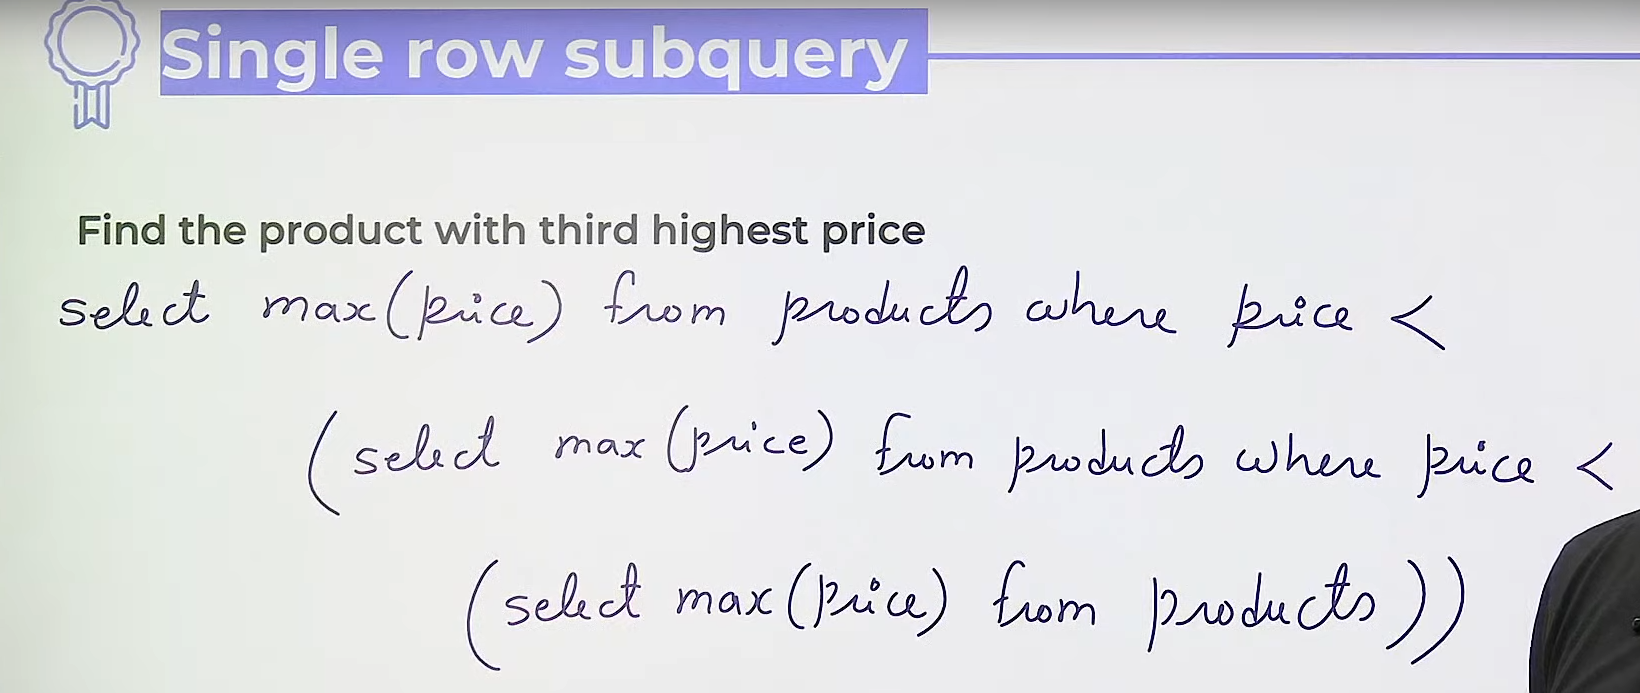 Single row subquery
Find the product with third highest price
select max(price) from products where price <
(select max(price) from products where price <
(select max(price) from products))